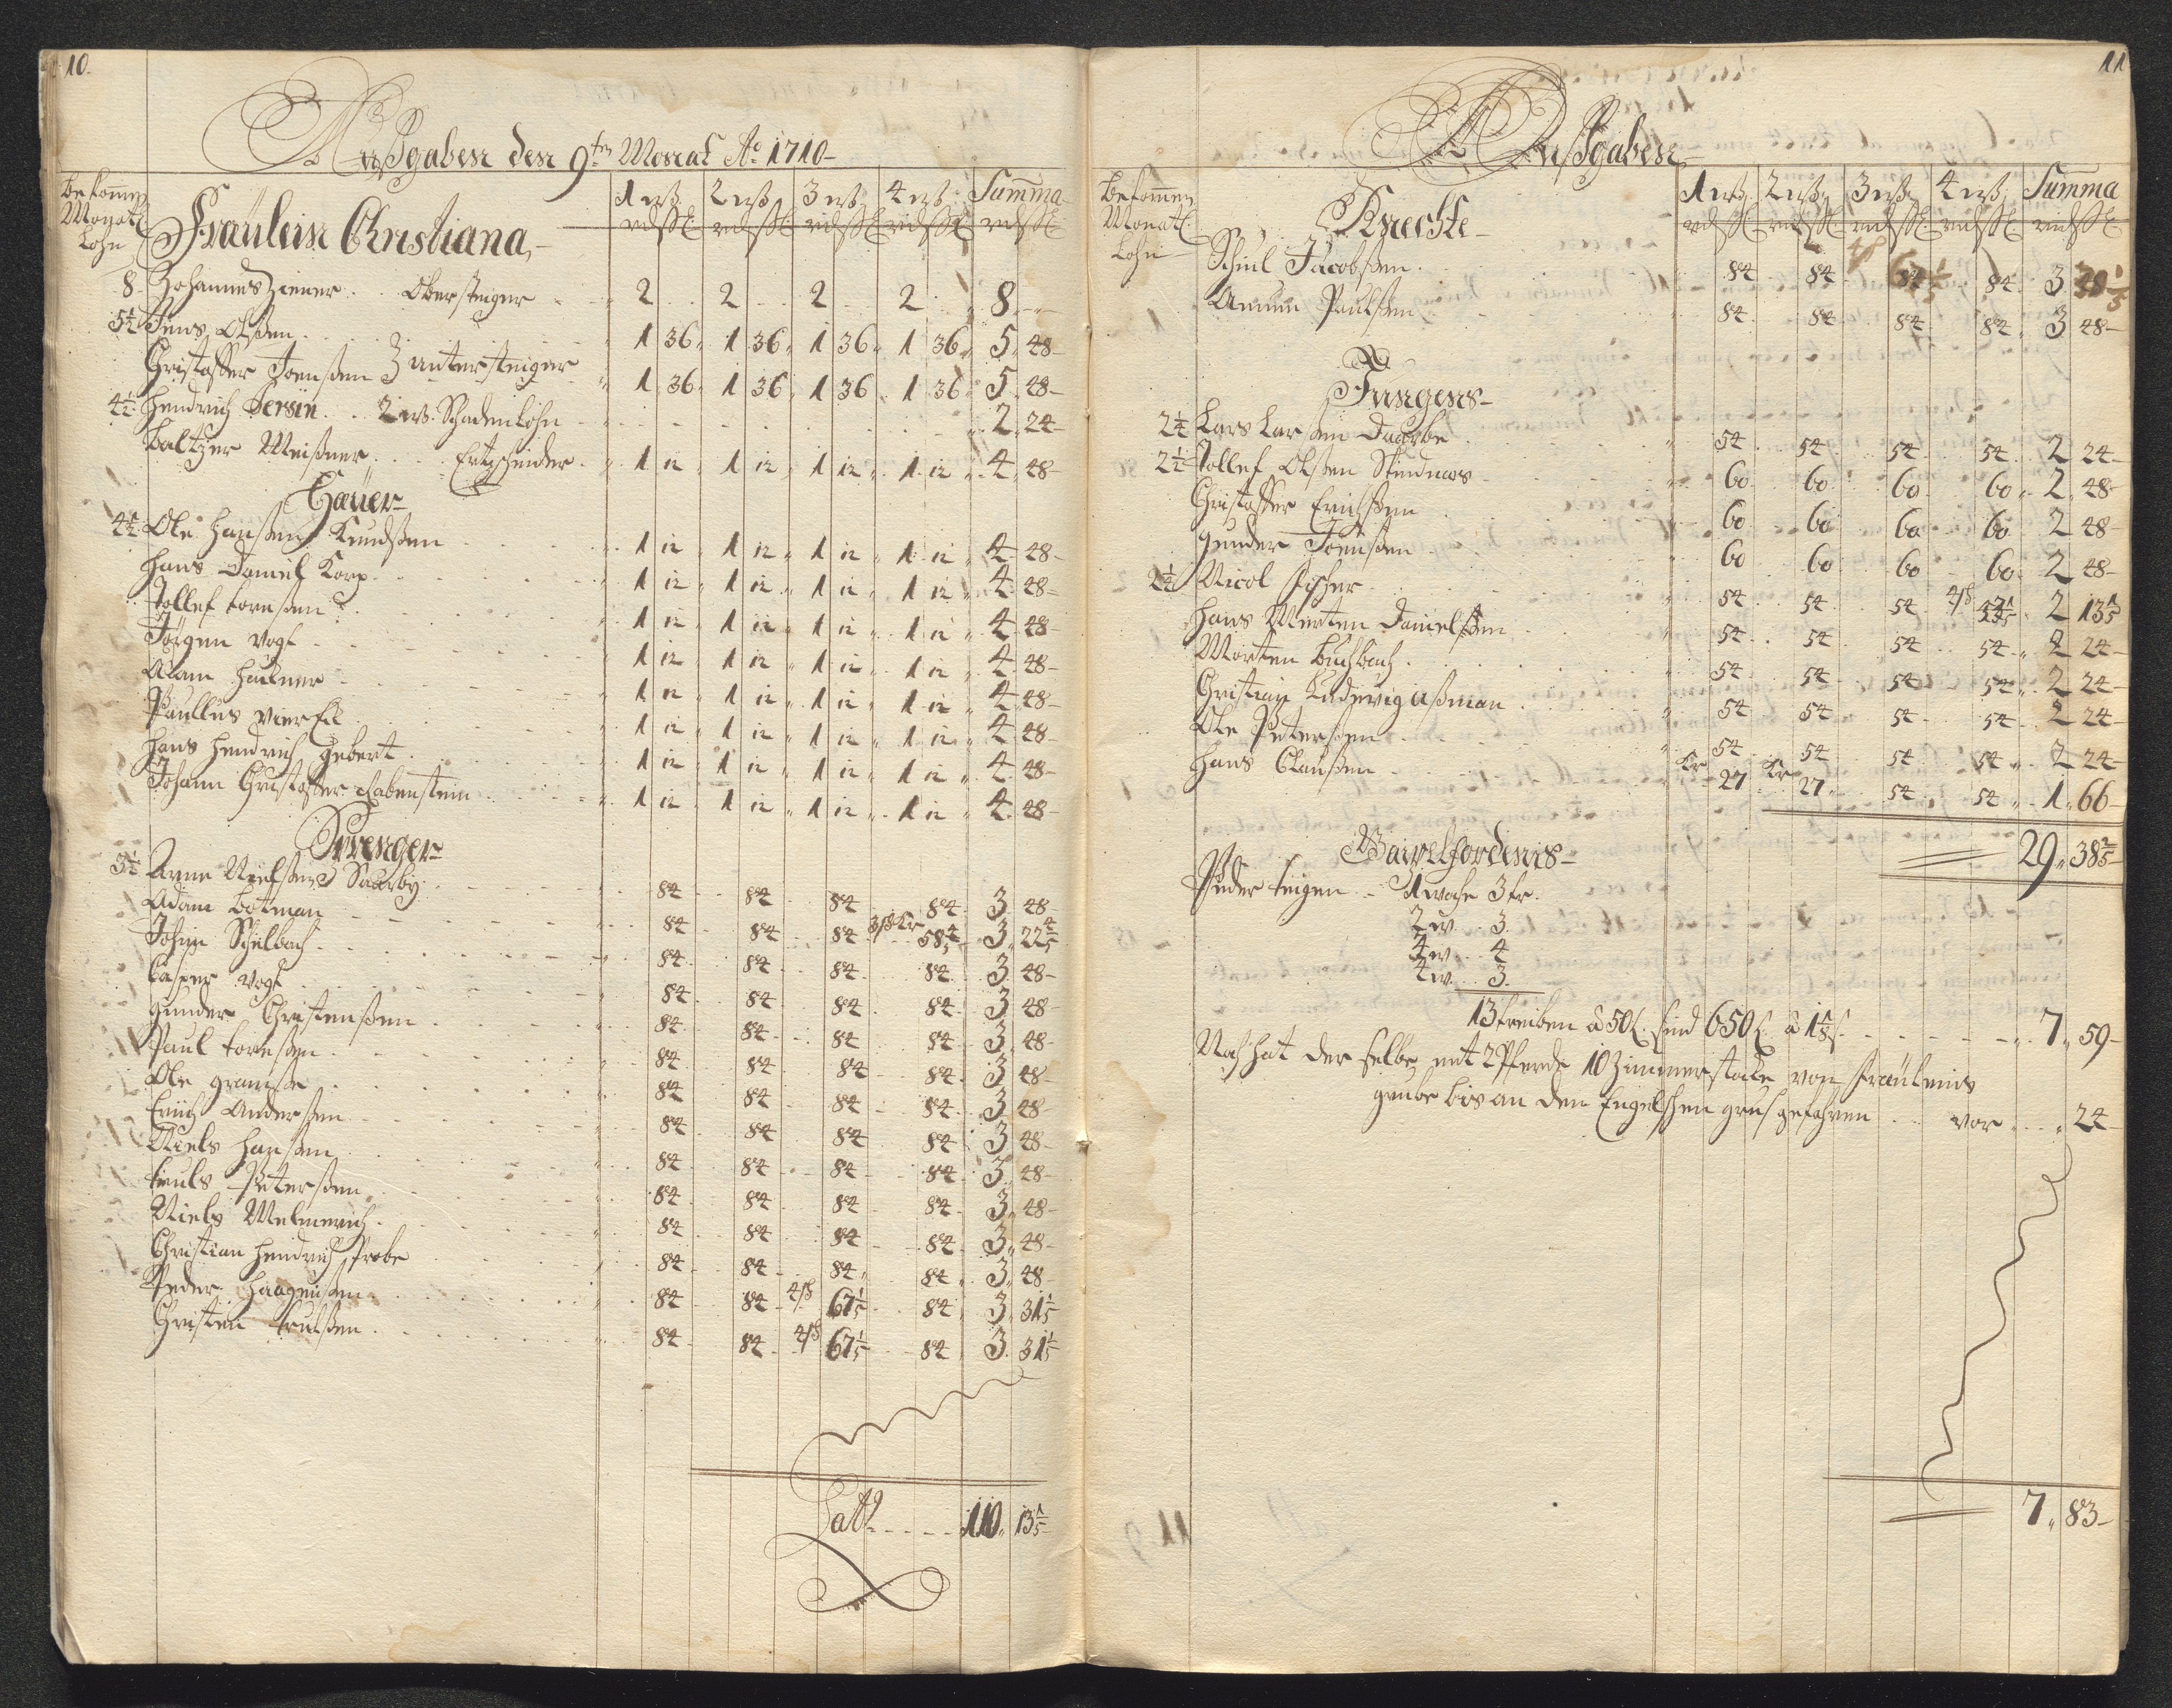 10.
Außgaben den 9ten Monat Ao 1710
Bekomen Monatl Lohn
Fräulein Christiana
1 wß 2 wß 3 wß 4 wß Summa
8 Johannes Ziener Obersteiger 2 2 2 2 8
5½ Jens Olßen 1 36 1 36 1 36 1 36 5 48
Christoffer Joenßen 3 untersteiger 1 36 1 36 1 36 1 36 5 48
4½ Hendrich Jersin 2 wß. Schadenlohn 2 24
Baltzer Meißner Ertzscheider 1 12 1 12 1 12 1 12 4 48
Hauer
4½ Ole Hanßen Knudßen 1 12 1 12 1 12 1 12 4 48
Hans Daniel Korp 1 12 1 12 1 12 1 12 4 48
Tollef Toreßen 1 12 1 12 1 12 1 12 4 48
Jörgen Vogt 1 12 1 12 1 12 1 12 4 48
Adam 1 12 1 12 1 12 1 12 4 48
Paullus Viereck 1 12 1 12 1 12 1 12 4 48
Hans Hendrich Gebert 1 12 1 12 1 12 1 12 4 48
Johann Christoffer Rabenstein 1 12 1 12 1 12 1 12 4 48
Sprenger
3½ Arne Nielßen Saarby 84 84 84 84 3 48
Adam Botman 84 84 84 3ß Kr 58⅘ 3 22⅘
Johan Schelbach 84 84 84 84 3 48
Casper Vogt 84 84 84 84 3 48
Gunder Christenßen 84 84 84 84 3 48
Paul Toreßen 84 84 84 84 3 48
Ole Granße 84 84 84 84 3 48
Erich Anderßen 84 84 84 84 3 48
Niels Hanßen 84 84 84 84 3 48
Truls Peterßen 84 84 84 84 3 48
Niels Melmerich 84 84 84 84 3 48
Christian Hendrich Probe 84 84 84 84 3 48
Peder Haagenßen 84 84 4ß 67⅕ 84 3 31⅕
Christen Trulßen 84 84 4ß 67⅕ 84 3 31⅕
Latt 110 13⅕
11
Außgaben
Bekomen Monatl. Lohn
Knechte
1 wß 2 wß 3 wß 4 wß Summa
Schiul Jacobßen 84 84 4ß 67⅕ 84 3
Amun Paulßen 84 84 84 84 3 48
Jungens
2¼ Lars Larßen Daarbe 54 54 54 54 2 24
2½ Tollef Olßen Stendmos 60 60 60 60 2 48
Christoffer Erichßen 60 60 60 60 2 48
Gunder Joenßen 60 60 60 60 2 48
2¼ Nicol Fischer 54 54 54 4ß 43⅕ 2 13⅕
Hans Merten Danielßen 54 54 54 54 2 24
Morten Buchbach 54 54 54 54 2 24
Christian Ludewig Ußman 54 54 54 54 2 24
Ole Peterßen 54 54 54 54 2 24
Hans Claußen Kr 27 Kr 27 54 54 1 66
29 38⅖
Gaipelfordenis
Peder Teigen 1 woche 3 tr.
2 w. 3
3 w. 4
4 w. 3
13 treiben â 50 l. sind 650 l. â 1⅛ ß 7 59
Noch hat der selbe mit 2 Pferde 10 Zimmerstöcke von Fräuleins
grube bis an den Engelschen grus gefahren vor 24
7 83